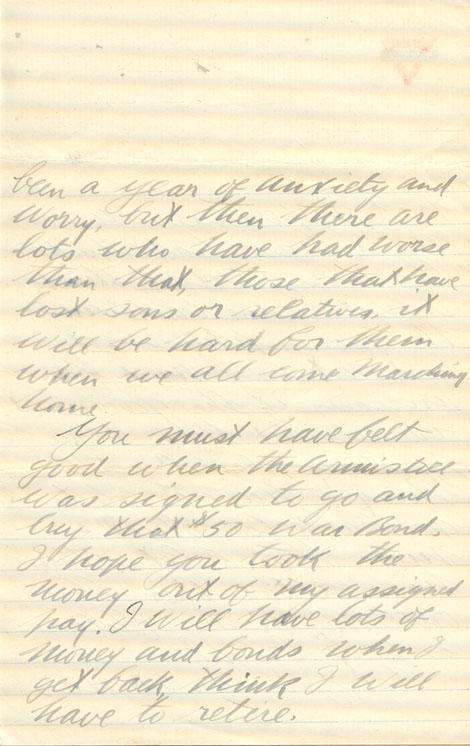 been a year of anxiety and
worry, but then there are
lots who have had worse
than that, those that have
lost sons or relatives, it
will be hard for them
when we all come marching
home
You must have felt
good when the Armistice
was signed to go and
buy that $50 War Bond.
I hope you took the
money out of my assigned
pay. I will have lots of
money and bonds when I
get back, think I will
have to retire.